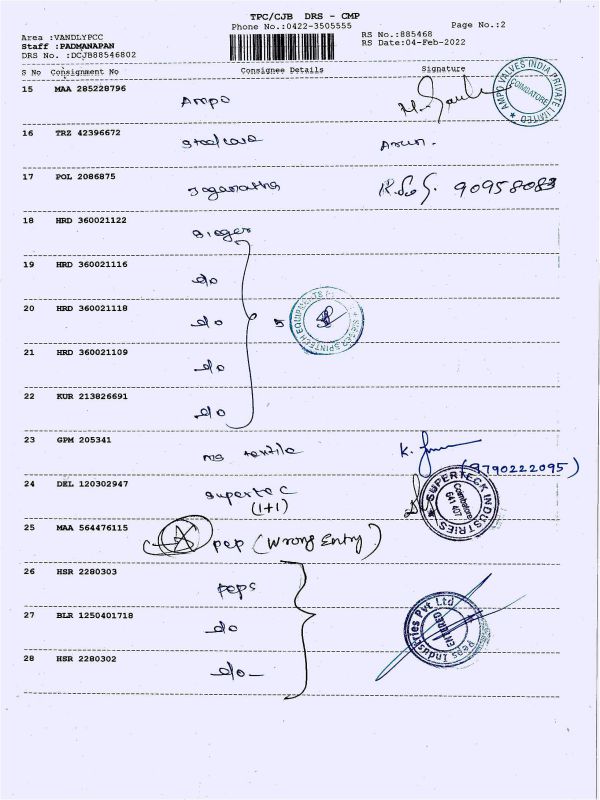 TPC/CJB DRS - CMP
Phone No.:0422-3505555
Page No.:2
Area :VANDLYPCC
RS No.:885468
Staff :PADMANAPAN
RS Date:04-Feb-2022
DRS No. :DCJB88546802
S No Consignment No Consignee Details Signature
15 MAA 285228796 Ampo
AMPO VALVES INDIA PRIVATE LIMITED
COIMBATORE
16 TRZ 42396672 Steelcare Arun.
17 POL 2086875 Joganatha 90958083
18 HRD 360021122 Sieger
19 HRD 360021116 do
20 HRD 360021118 do
SIEGER SPINTECH EQUIPMENTS
21 HRD 360021109 do
22 KUR 213826691 do
23 GPM 205341 ms textile
(9790222095)
24 DEL 120302947 Supertec
(1+1)
SUPERTECK INDUSTRIES
Coimbatore
641 407
25 MAA 564476115 A pep (Wrong Entry)
26 HSR 2280303 peps
27 BLR 1250401718 do
Peps Industries Pvt Ltd
ENTERED
28 HSR 2280302 do